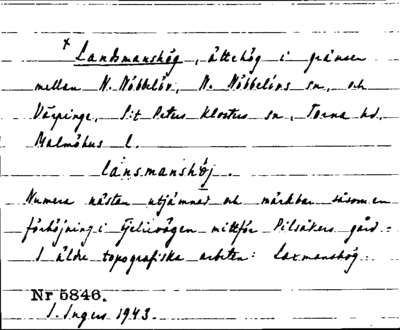 × Landsmanshög, ättehög i gränsen
mellan N. Nöbbelöv, N. Nöbbelövs sn, och
Värpinge, S:t Peters Klosters sn, Torna hd,
Malmöhus l.
lansmanshöj.
Numera nästan utjämnad och märkbar såsom en
förhöjning i Fjelievägen mittför Pilsåkers gård.
I äldre topografiska arbeten: Laxmanshög.
Nr 5846.
I. Ingers 1943.